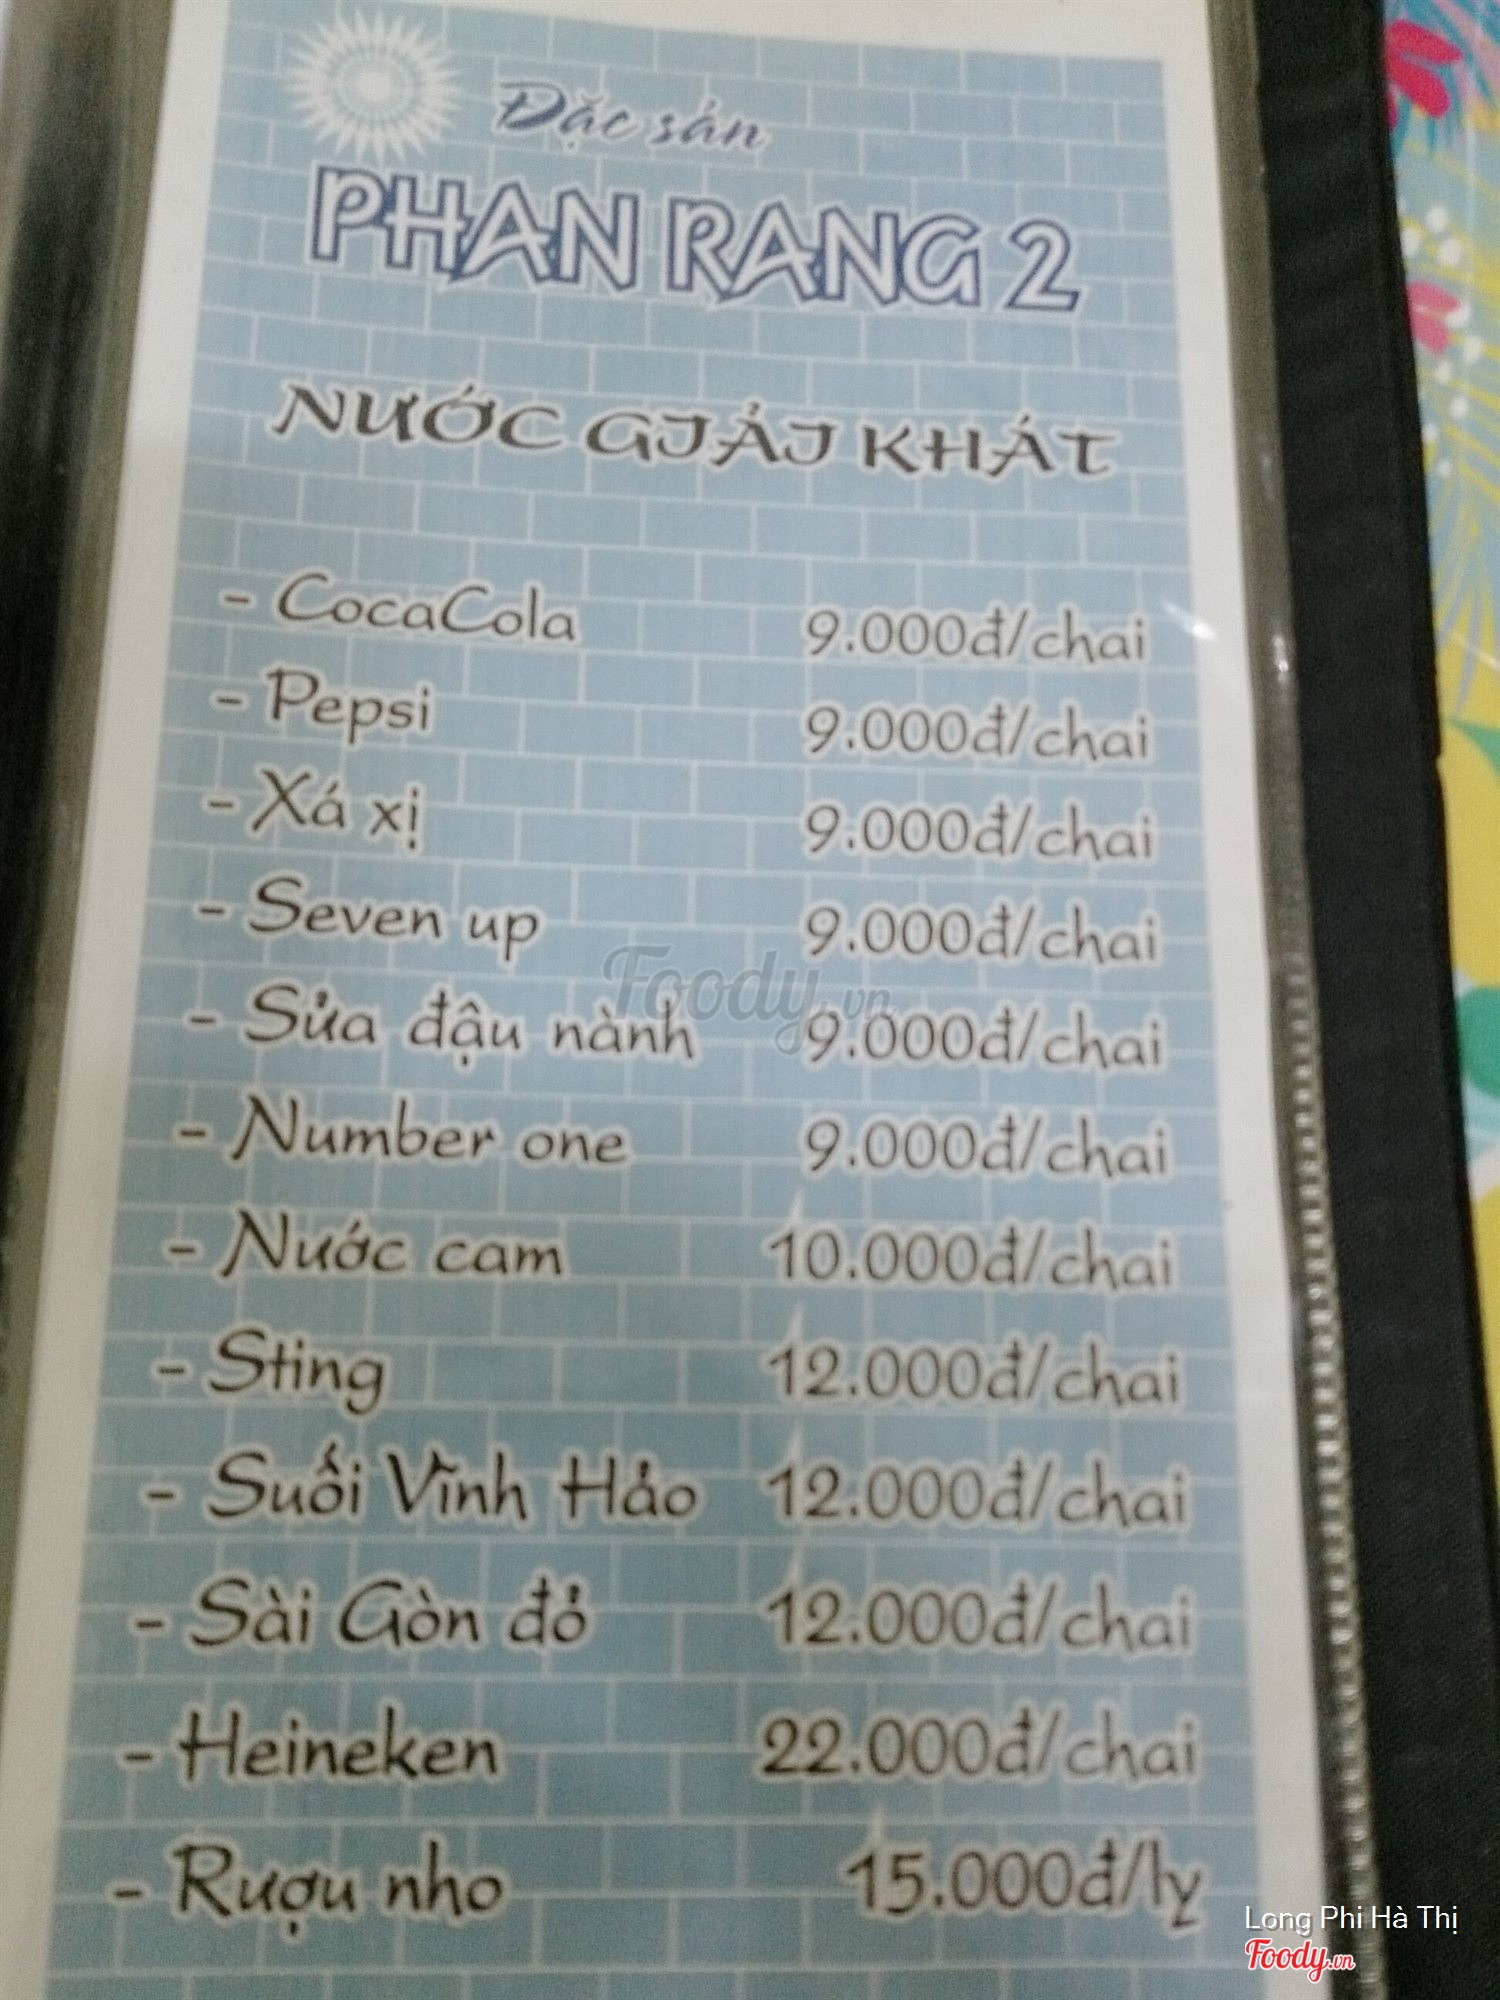 Đặc sản
PHAN RANG 2
NƯỚC GIẢI KHÁT
- CocaCola 9.000đ/chai
- Pepsi 9.000đ/chai
- Xá xị 9.000đ/chai
- Seven up 9.000đ/chai
- Sửa đậu nành 9.000đ/chai
- Number one 9.000đ/chai
- Nước cam 10.000đ/chai
- Sting 12.000đ/chai
- Suối Vĩnh Hảo 12.000đ/chai
- Sài Gòn đỏ 12.000đ/chai
- Heineken 22.000đ/chai
- Rượu nho 15.000đ/ly
Foody.vn
Long Phi Hà Thị
Foody.vn